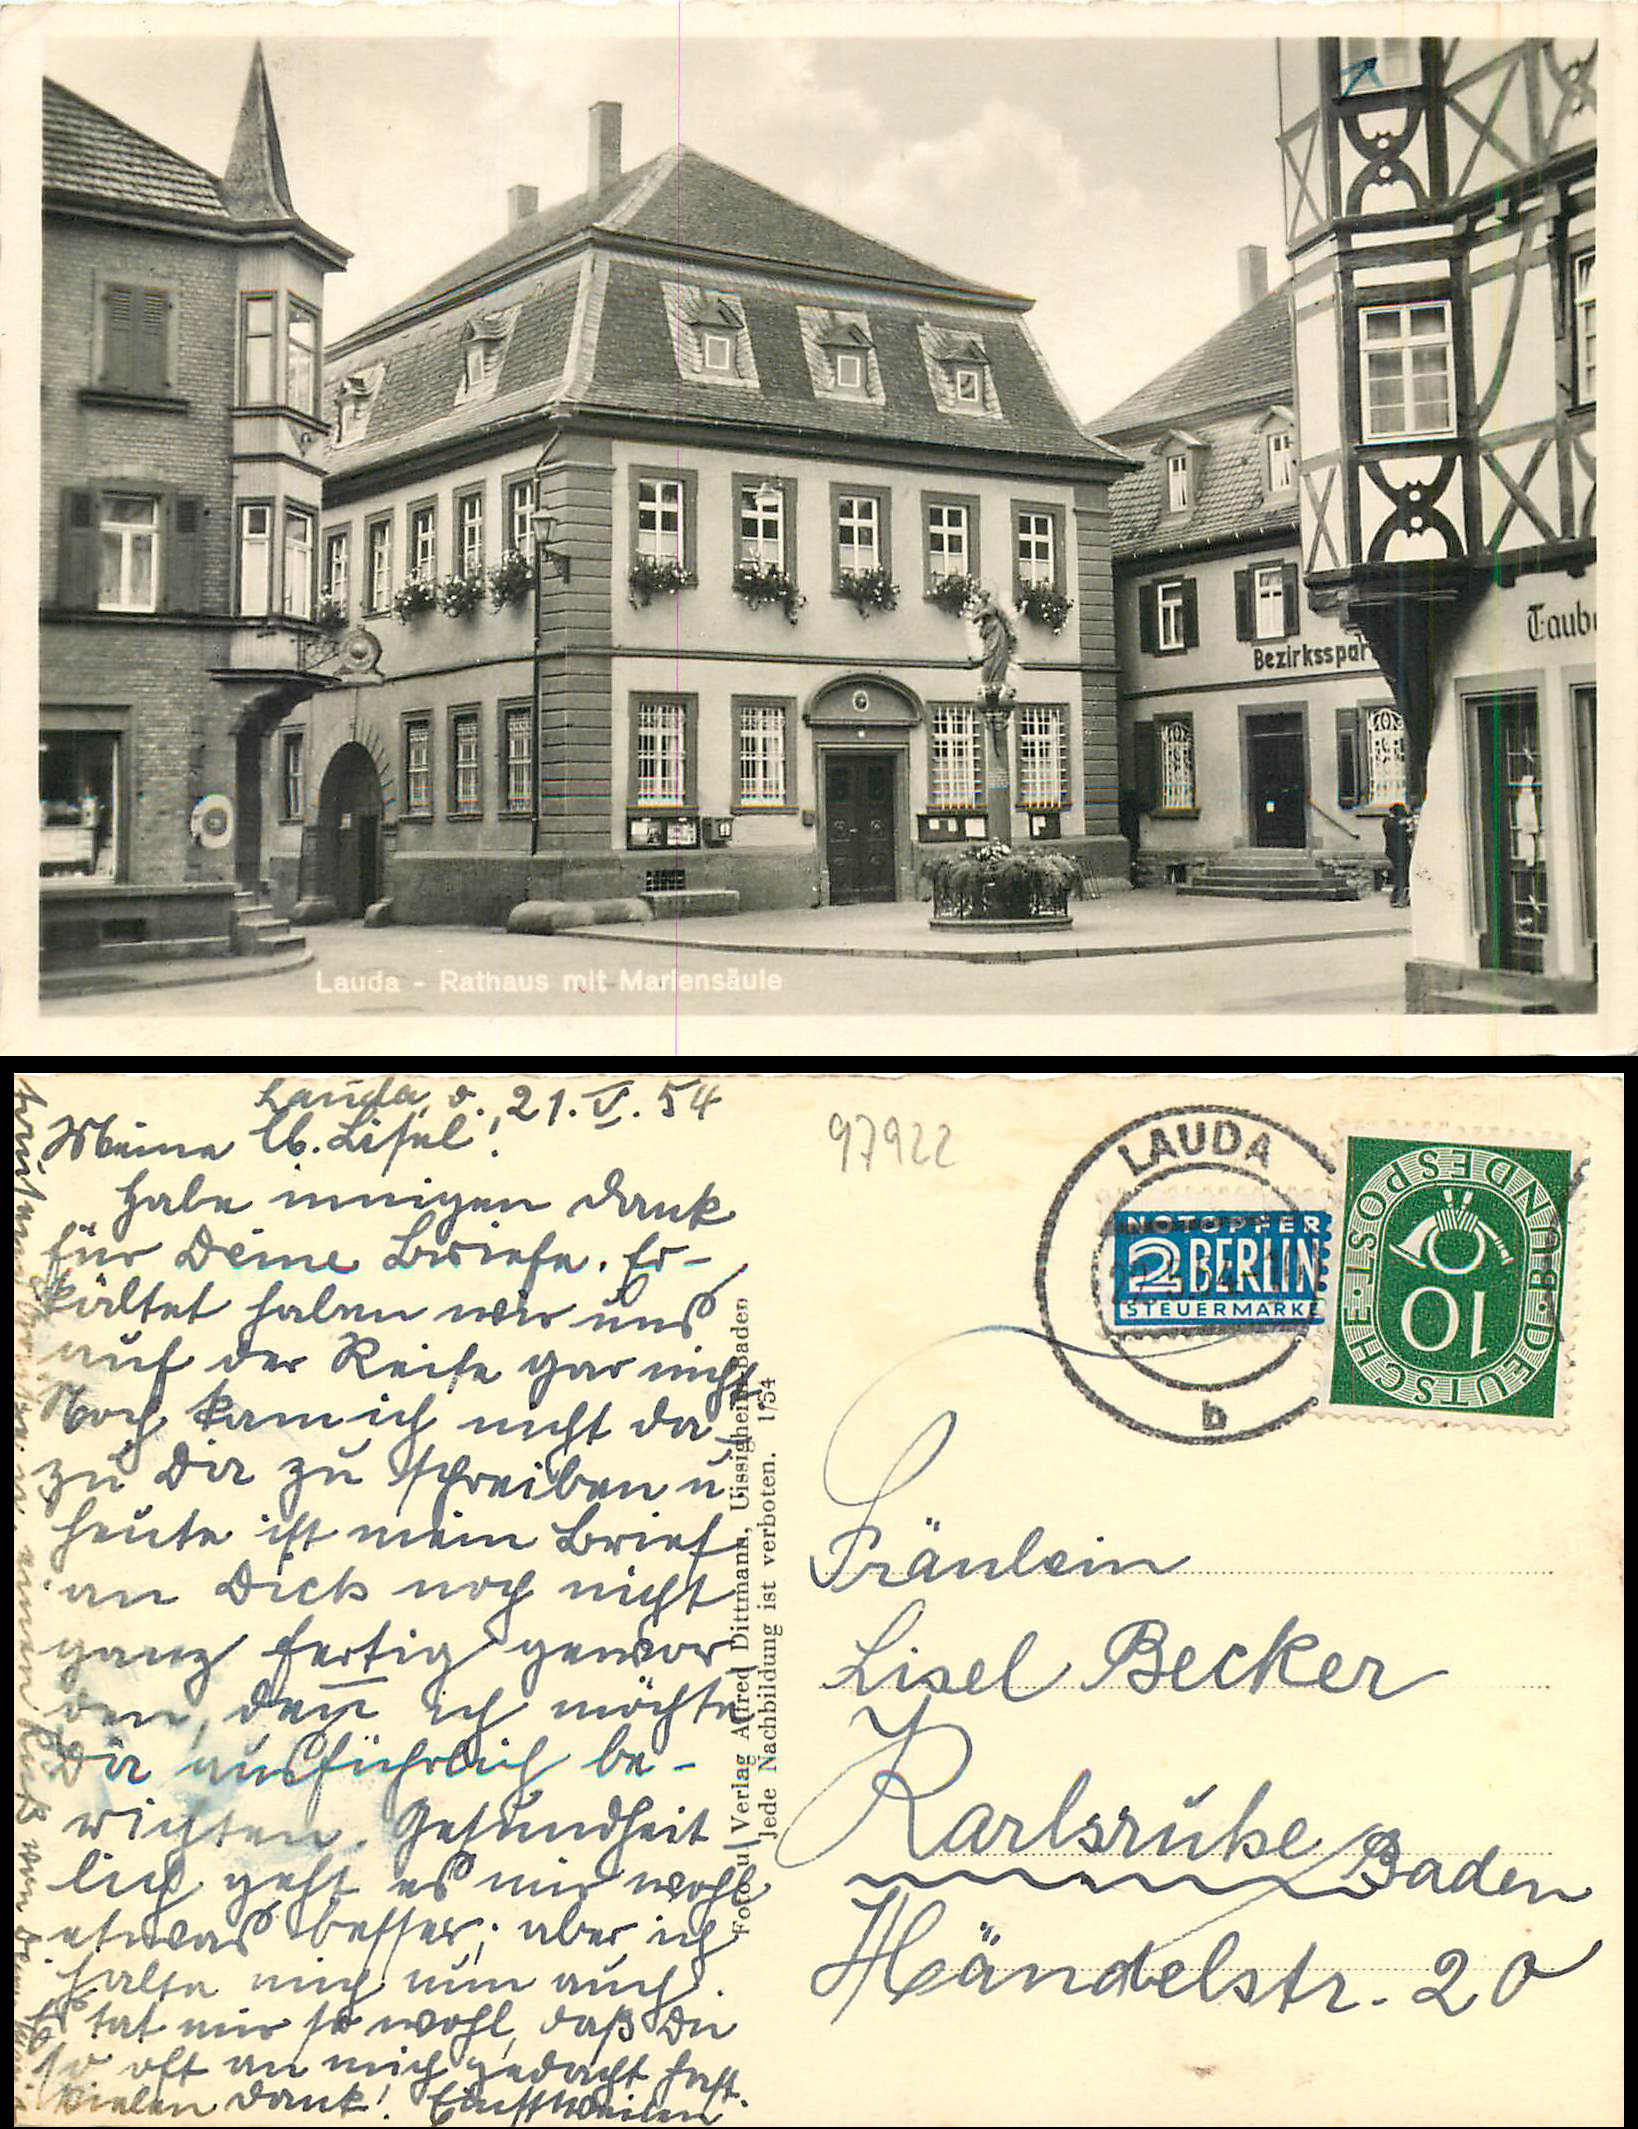 Taub
Bezirksspar
Lauda - Rathaus mit Mariensäule
Lauda, d. 21. V. 54
Meine lb. Lisel!
Habe innigen Dank
für Deine Briefe. Er-
kältet haben wir uns
auf der Reise gar nicht
Noch kam ich nicht da-
zu Dir zu schreiben u.
heute ist mein Brief
an Dich noch nicht
ganz fertig gewor
den, denn ich möchte
Dir ausführlich be-
richten. Gesundheit
lich geht es mir wohl
etwas besser; aber ich
halte mich nun auch.
Es tat mir so wohl, daß Du
so oft an mich gedacht hast.
Vielen Dank! Einstweilen
einen Kuß von Deiner
Foto u. Verlag Alfred Dittmann, Uissigheim/Baden
Jede Nachbildung ist verboten. 1/54
97922
LAUDA
b
NOTOPFER
2 BERLIN
STEUERMARKE
DEUTSCHE·POST·BUNDESPOST
10
Fräulein
Lisel Becker
Karlsruhe Baden
Händelstr. 20